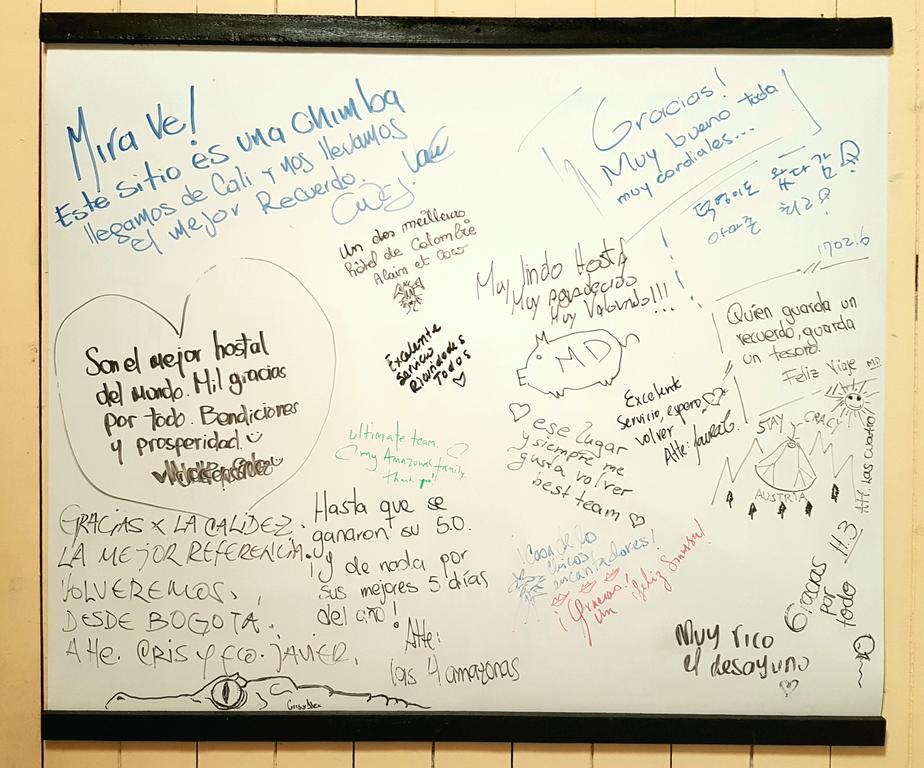 Mira ve!
Este sitio es una chimba
llegamos de Cali y nos llevamos
el mejor Recuerdo.
Gracias!
Muy bueno todo
muy cordiales...
170216
un des meilleurs
hôtel de Colombie
Alain et Coco
Muy lindo Hostal
Muy agradecido
Muy Volando!!!
MD
Son el mejor hostal
del mundo. Mil gracias
por todo. Bendiciones
y prosperidad.
Excelente
servicio
Todos
Quien guarda un
recuerdo, guarda
un tesoro.
Feliz Viaje MD
Excelente
servicio, espero
volver
Atte: Laura G.
ese lugar
y siempre me
gusta volver
best team
ultimate team.
my Amazonas family.
Thank you!
STAY CRAZY
AUSTRIA
Att. Las cuatro
GRACIAS X LA CALIDEZ.
LA MEJOR REFERENCIA.
VOLVEREMOS.
DESDE BOGOTA.
Atte. CRIS Y FCO. JAVIER.
Hasta que se
ganaron su 5.0.
¡y de nada por
sus mejores 5 días
del año!
Atte:
las 4 amazonas
¡Gracias!
un ¡feliz
Muy rico
el desayuno
Gracias
por
todo H.3